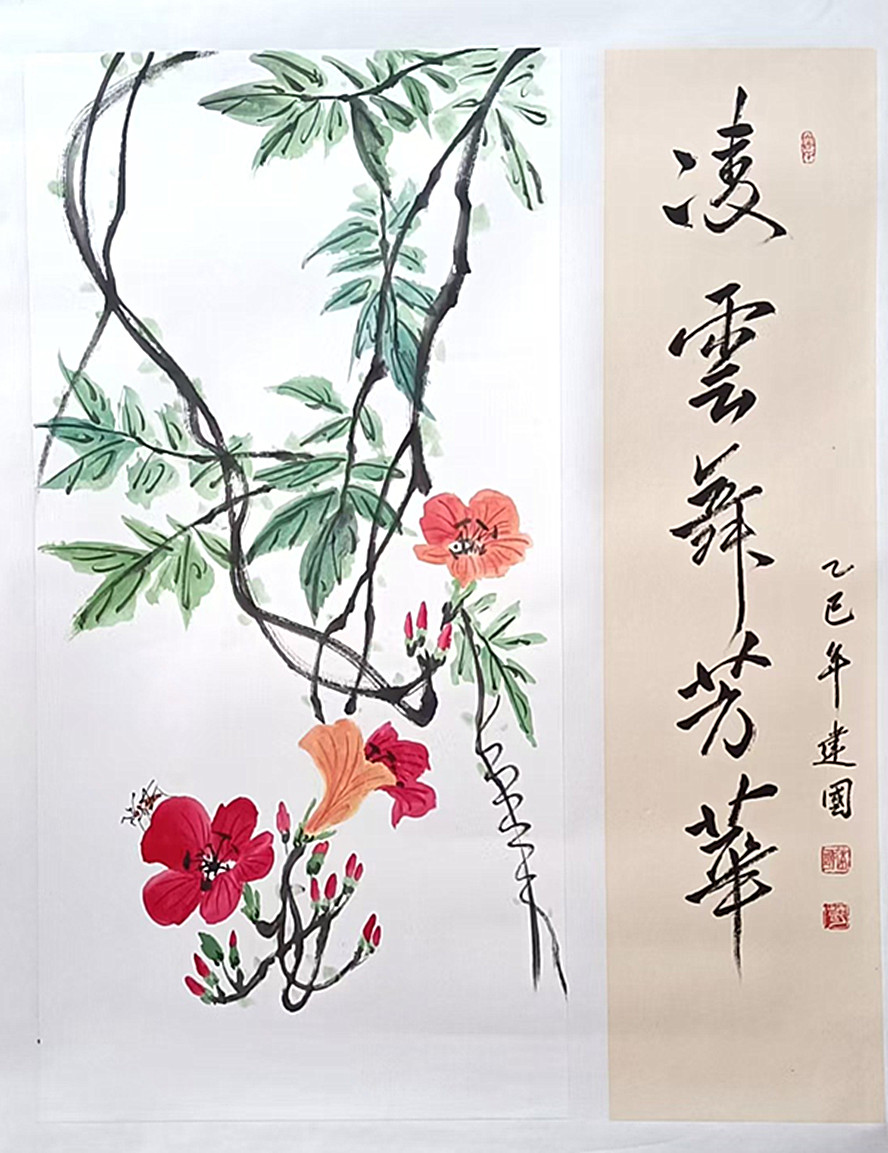 凌雲舞芳華
乙巳年建國